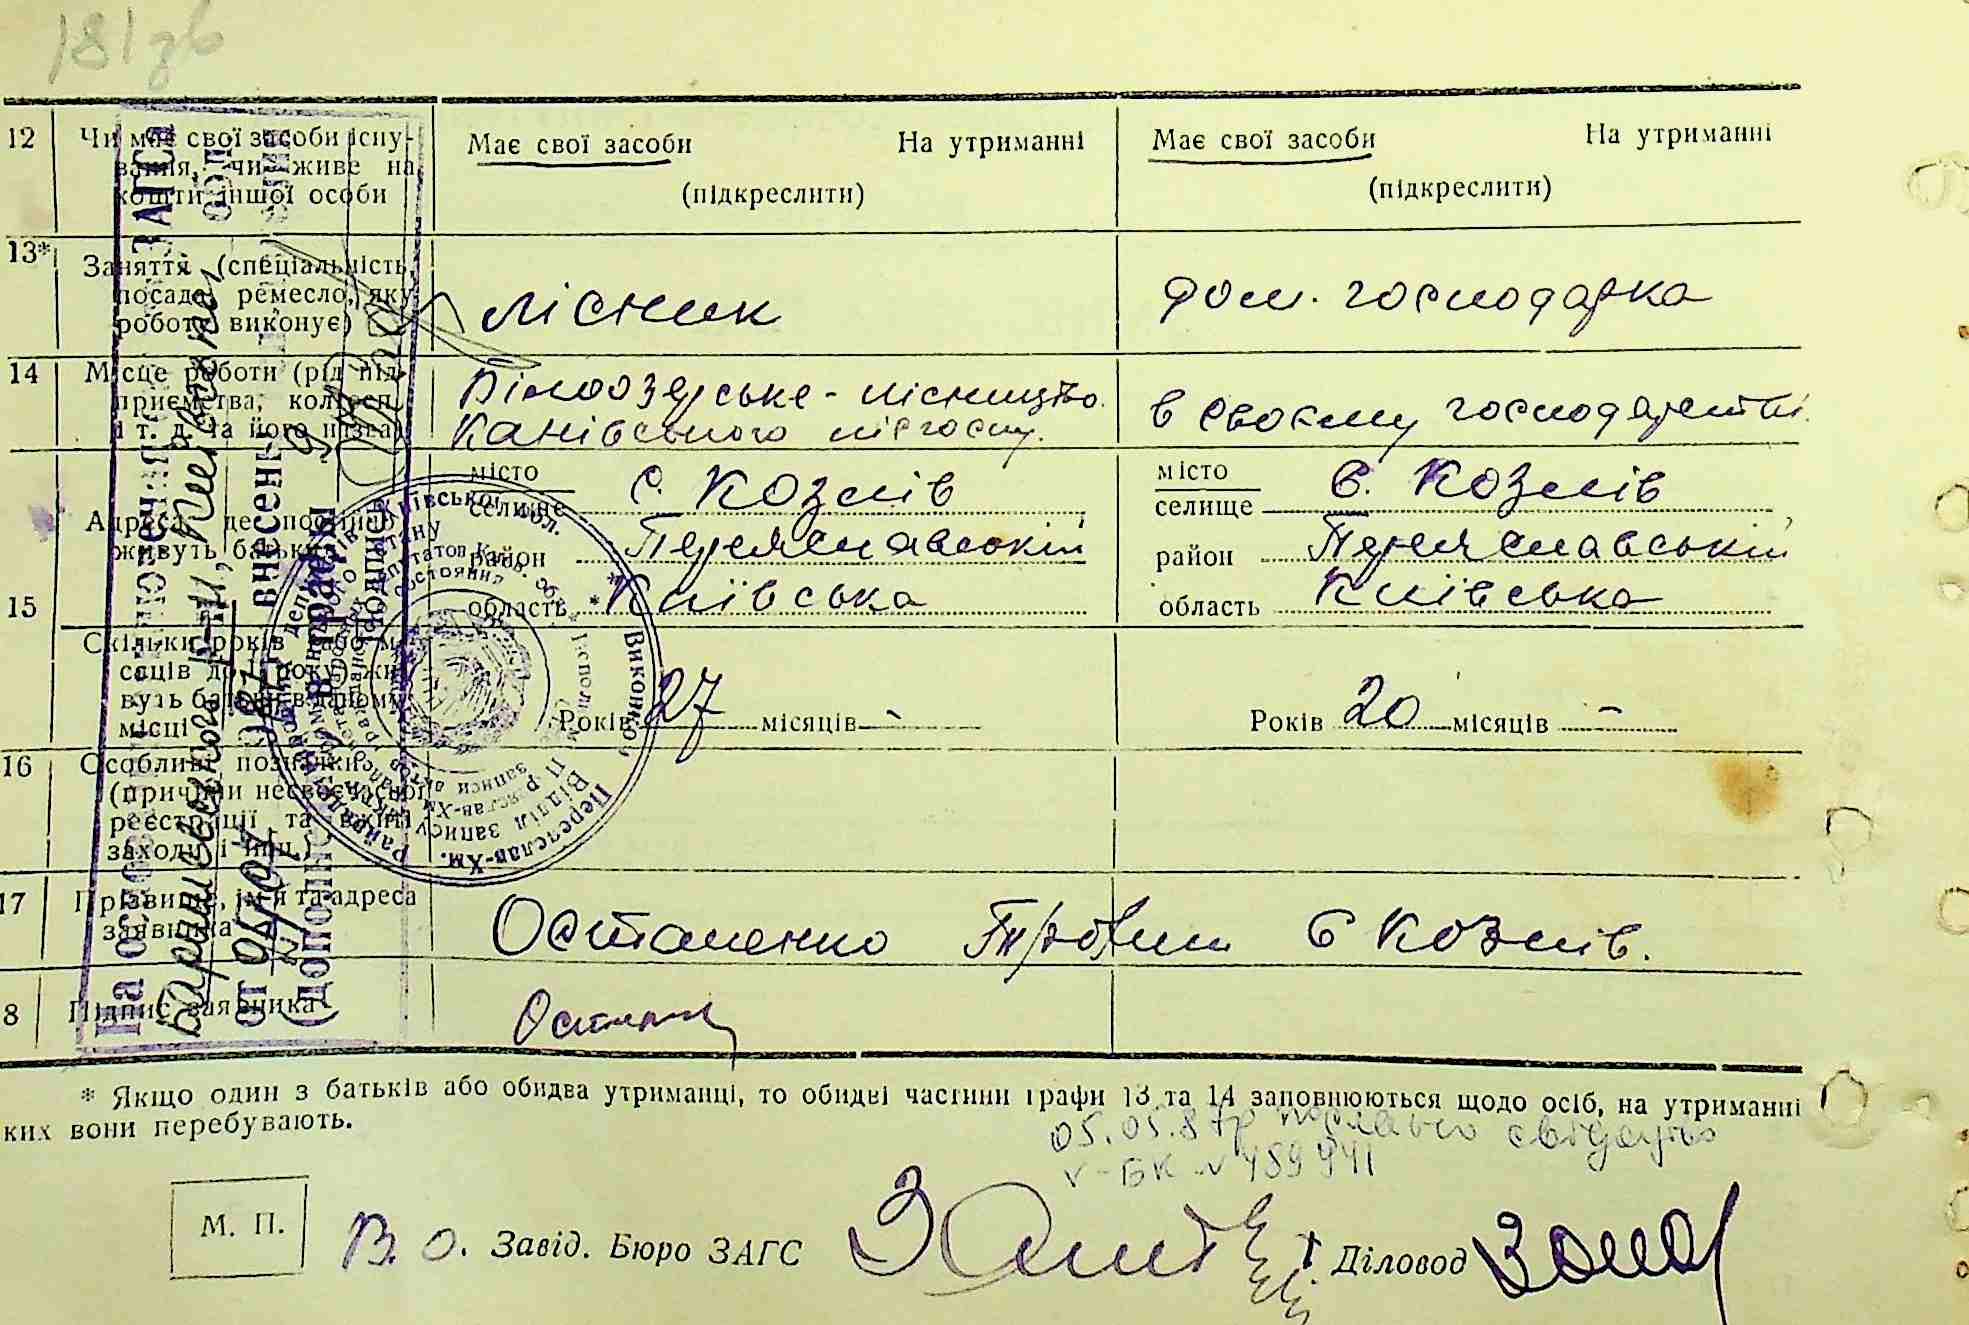 181 зв
12 Чи має свої засоби існування, чи живе на кошти іншої особи
Має свої засоби На утриманні
(підкреслити)
Має свої засоби На утриманні
(підкреслити)
13* Заняття (спеціальність, посада, ремесло, яку роботу виконує)
лісник
дом. господарка
14 Місце роботи (рід підприємства, колгосп і т. д. та його назва)
Білоозерське - лісництво
Канівського лісгоспу.
в своєму господарстві.
15 Адреса, де постійно живуть батьки
місто селище с. Козлів
район Переяславський
область Київська
місто селище с. Козлів
район Переяславський
область Київська
Скільки років (або місяців до 1 року) живуть батьки в даному місці
Років 27 місяців -
Років 20 місяців -
16 Особливі позначки (причини несвоєчасної реєстрації та вжиті заходи і інш.)
17 Прізвище, ім'я та адреса заявника
Остапенко Трохим с Козлів.
8 Підпис заявника
* Якщо один з батьків або обидва утриманці, то обидві частини графи 13 та 14 заповнюються щодо осіб, на утриманні
ких вони перебувають.
05.05.87р свідоцтво
V-БК № 489941
М. П.
В. О. Завід. Бюро ЗАГС
Діловод
На основ ЗАГСа
внесены
(дополнен в графы
Подпись
Виконком
Відділ запису
Переяслав-Хм.